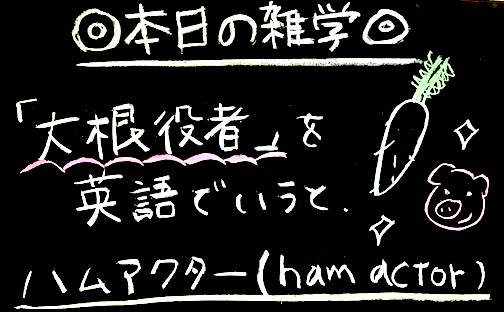 ◎本日の雑学◎
「大根役者」を
英語でいうと、
ハムアクター(ham actor)